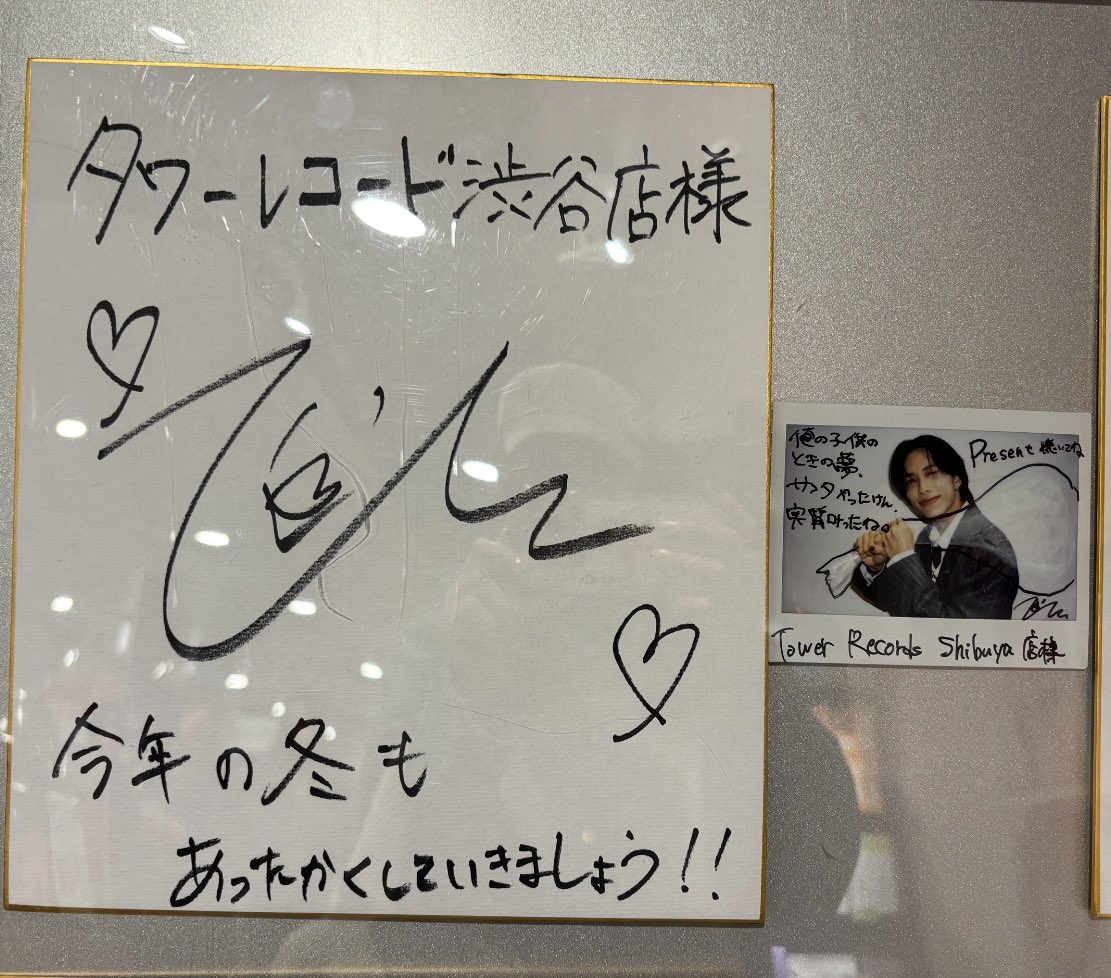 タワーレコード渋谷店様
今年の冬も
あったかくしていきましょう!!
俺の子供の
ときの夢、
サンタやったけん、
実質叶ったね。
Present 聴いてね
Tower Records Shibuya 店様